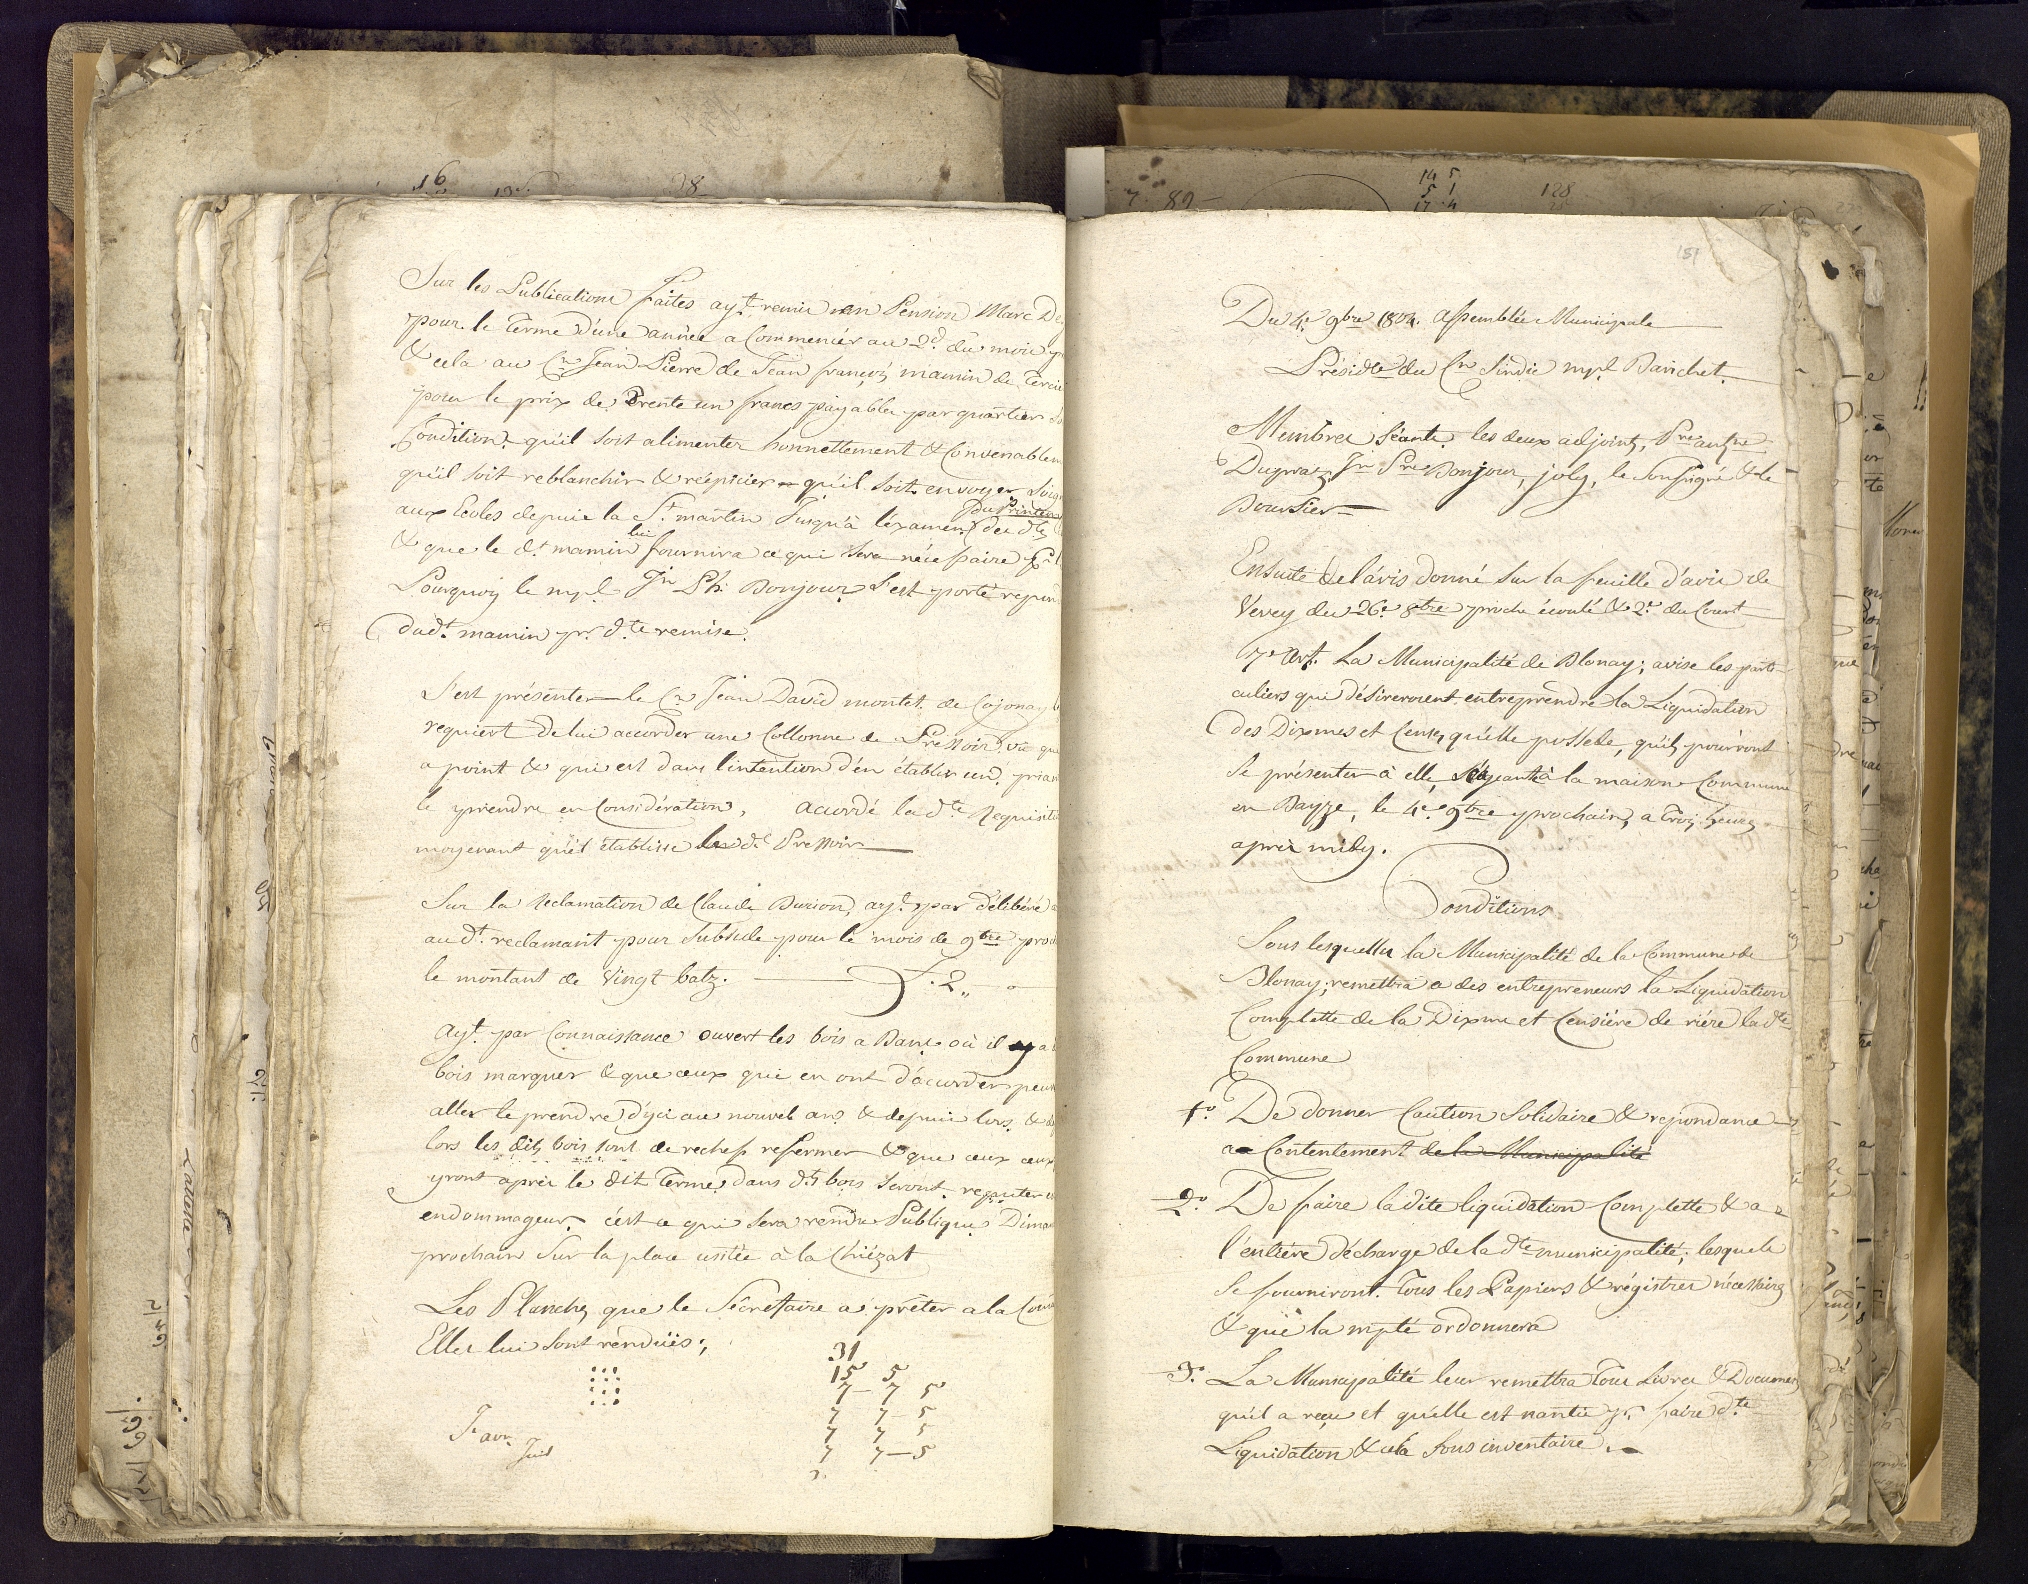 Sur les Publications faites ayt. remis en Pension Marc De
pour le terme d'une année a Commencér au 2d. du mois
& cela au Cn Jean Pierre de Jean françois mamin de
pour le prix de Trente un francs payables par quartier
Condition qu'il soit alimenter honnettement & Convenablem
qu'il soit reblanchir & réépicier qu'il soit envoyer
du Printems
aux Ecoles depuis la St. martin Jusqu'à l'éxamen des dts
lui
& que le dt. mamin fournira ce qui sera nécéssaire
Pourquoy le mpl Jn Ph. Bonjour s'est porté repon
dudt. mamin pr. dte remise.
S'est présenter le Cn Jean David montet de Cojonay
requiert de lui accorder une Collonne de Pressoir, vû que
a point & qui est dans l'intention d'en établir un, prian
le prendre en Considération, accordé la dte Requisit
moyenant qu'il établisse le dt Pressoir
Sur la Reclamation de Claude Burion, ayt. par délibéré
au dt. reclamant pour Subside pour le mois de 9bre pro
le montant de Vingt batz. f. 2,,
Ayt. par Connaissance ouvert les bois a Bans où il y a
bois marquer & que ceux qui en ont d'acorder peu
aller le prendre d'yci au nouvel ans & depuis lors &
lors les dits bois sont de rechef refermer & que ceux
yront après le dit Terme dans dts bois seront reputer
endommageur, c'est ce qui sera rendu Publique Dima
prochain sur la place usitée à la Chiézat
Les Planches que le Secrétaire a prêter a la Com
Elles lui sont renduës;
31
15 5
7 - 7 5
7 7 - 5
7 7 5
7 7 - 5
151
Du 4e. 9bre 1804. Assemblée Municipale
Présidte du Cn Sindic mpl Barichet
Membres séants. les deux adjoints,
Dupraz, Jn Pre Bonjour, joly, le Soussigné & le
Boursier
Ensuite de l'avis donné sur la feuille d'avis de
Vevey du 26e. 8bre proche écoulé & 2e. du Court
7e Art. La Municipalité de Blonay; avise les parti-
culiers qui désireroient entreprendre la Liquidation
des Dixmes et Censes qu'elle possede, qu'ils pourront
se présenter à elle, Siégeante à la maison Commune
en Bayse, le 4e 9bre prochain, a trois heures
après midy.
Conditions
Sous lesquelles la Municipalité de la Commune de
Blonay; remettra a des entrepreneurs la Liquidation
Complette de la Dixme et Censière de rière la dte
Commune
1o. De donner Caution Solidaire & repondance
a Contentement de la Municipalité
2o. De faire ladite liquidation Complette & a
l'entière décharge de la dte municipalité; lesquels
se fourniront Tous les Papiers & régistres nécessaires
& que la mpté ordonnera
3o. La Municipalité leur remettra tous Livres & Documens
qu'il a reçu et qu'elle est nantie pr. faire dte
Liquidation & cela Sous inventaire.